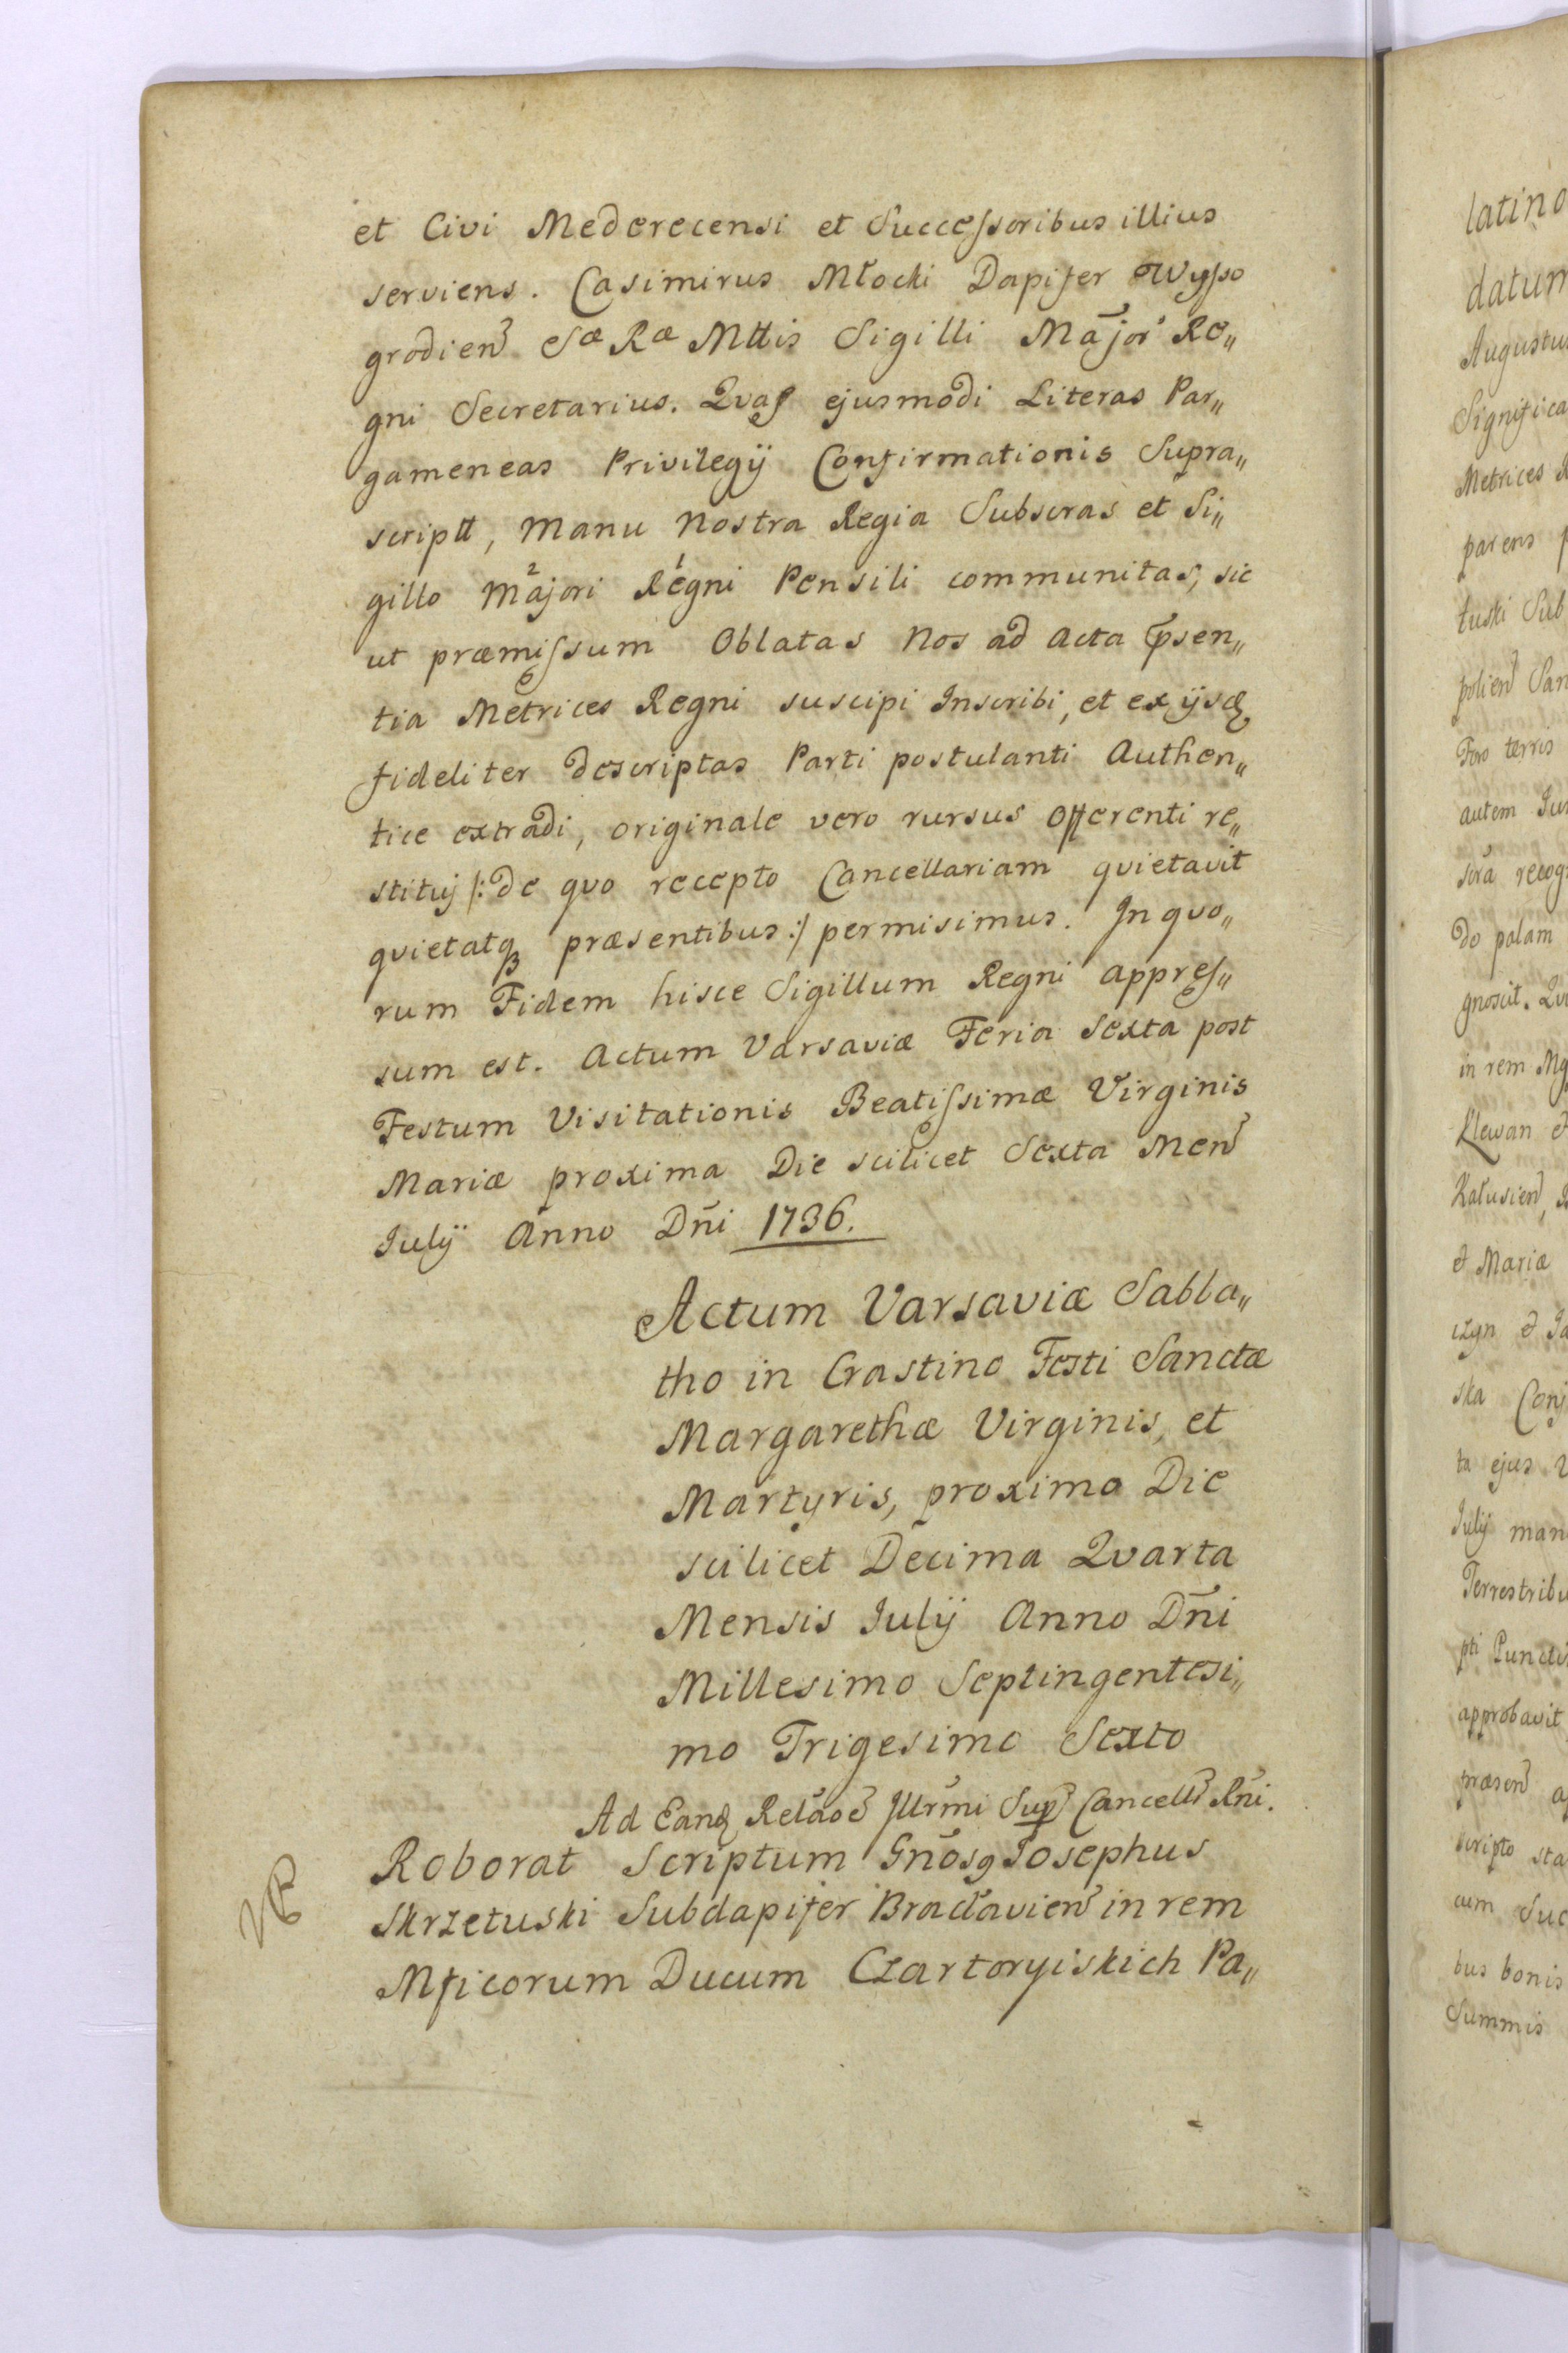 et Civi Mederecensi et Successoribus illius
serviens. Casimirus Młocki Dapifer Wysso
grodien̄ Sæ Ræ Mttis Sigilli Major Re„
gni Secretarius. Qvas ejusmodi Literas Par„
gameneas Privilegij Confirmationis Supra„
scriptt, Manu Nostra Regia Subscras et Si„
gillo M²ajori R¹egni Pensili communitas, sic
ut præmissum Oblatas Nos ad Acta p̄sen„
tia Metrices Regni suscipi Inscribi, et ex ijsdē
fideliter descriptas Parti postulanti Authen„
tice extradi, originale vero rursus Offerenti re„
stituj /: de qvo recepto Cancellariam qvietavit
qvietatqꝫ præsentibus :/ permisimus. In qvo„
rum Fidem hisce Sigillum Regni appres„
sum est. Actum Varsaviæ Feria Sexta post
Festum Visitationis Beatissimæ Virginis
Mariæ proxima Die scilicet Sexta Men̄
Julij Anno Dn̄i 1736.
Actum Varsaviæ Sabba„
tho in Crastino Festi Sanctæ
Margarethæ Virginis, et
Martyris, proximo Die
scilicet Decima Qvarta
Mensis Julij Anno Dn̄i
Millesimo Septingentesi„
mo Trigesimo Sexto
Ad Eandē Relāoē Illrm̄i Sup̄ Cancell̄ Rn̄i.
NB
Roborat Scriptum Gn̄osꝯ Josephus
Skrzetuski Subdapifer Bracłavien̄ in rem
Mficorum Ducum Czartoryiskich Pa„
latino
datum
Augustu
Significa
Metrices R
parens p
tuski Sub
polien̄ San
Foro terris
autem Iu
sc̄ra recog
do palam
gnoscit. Qv
in rem Mg
Klewan et
Kałusien̄,
et Mariæ
czyn et Ja
ska Conj
ta ejus
Julij man
Terrestribu
pti Puncti
approbavit
præsen̄ a
scripto sta
cum Suc
bus bonis
Summis